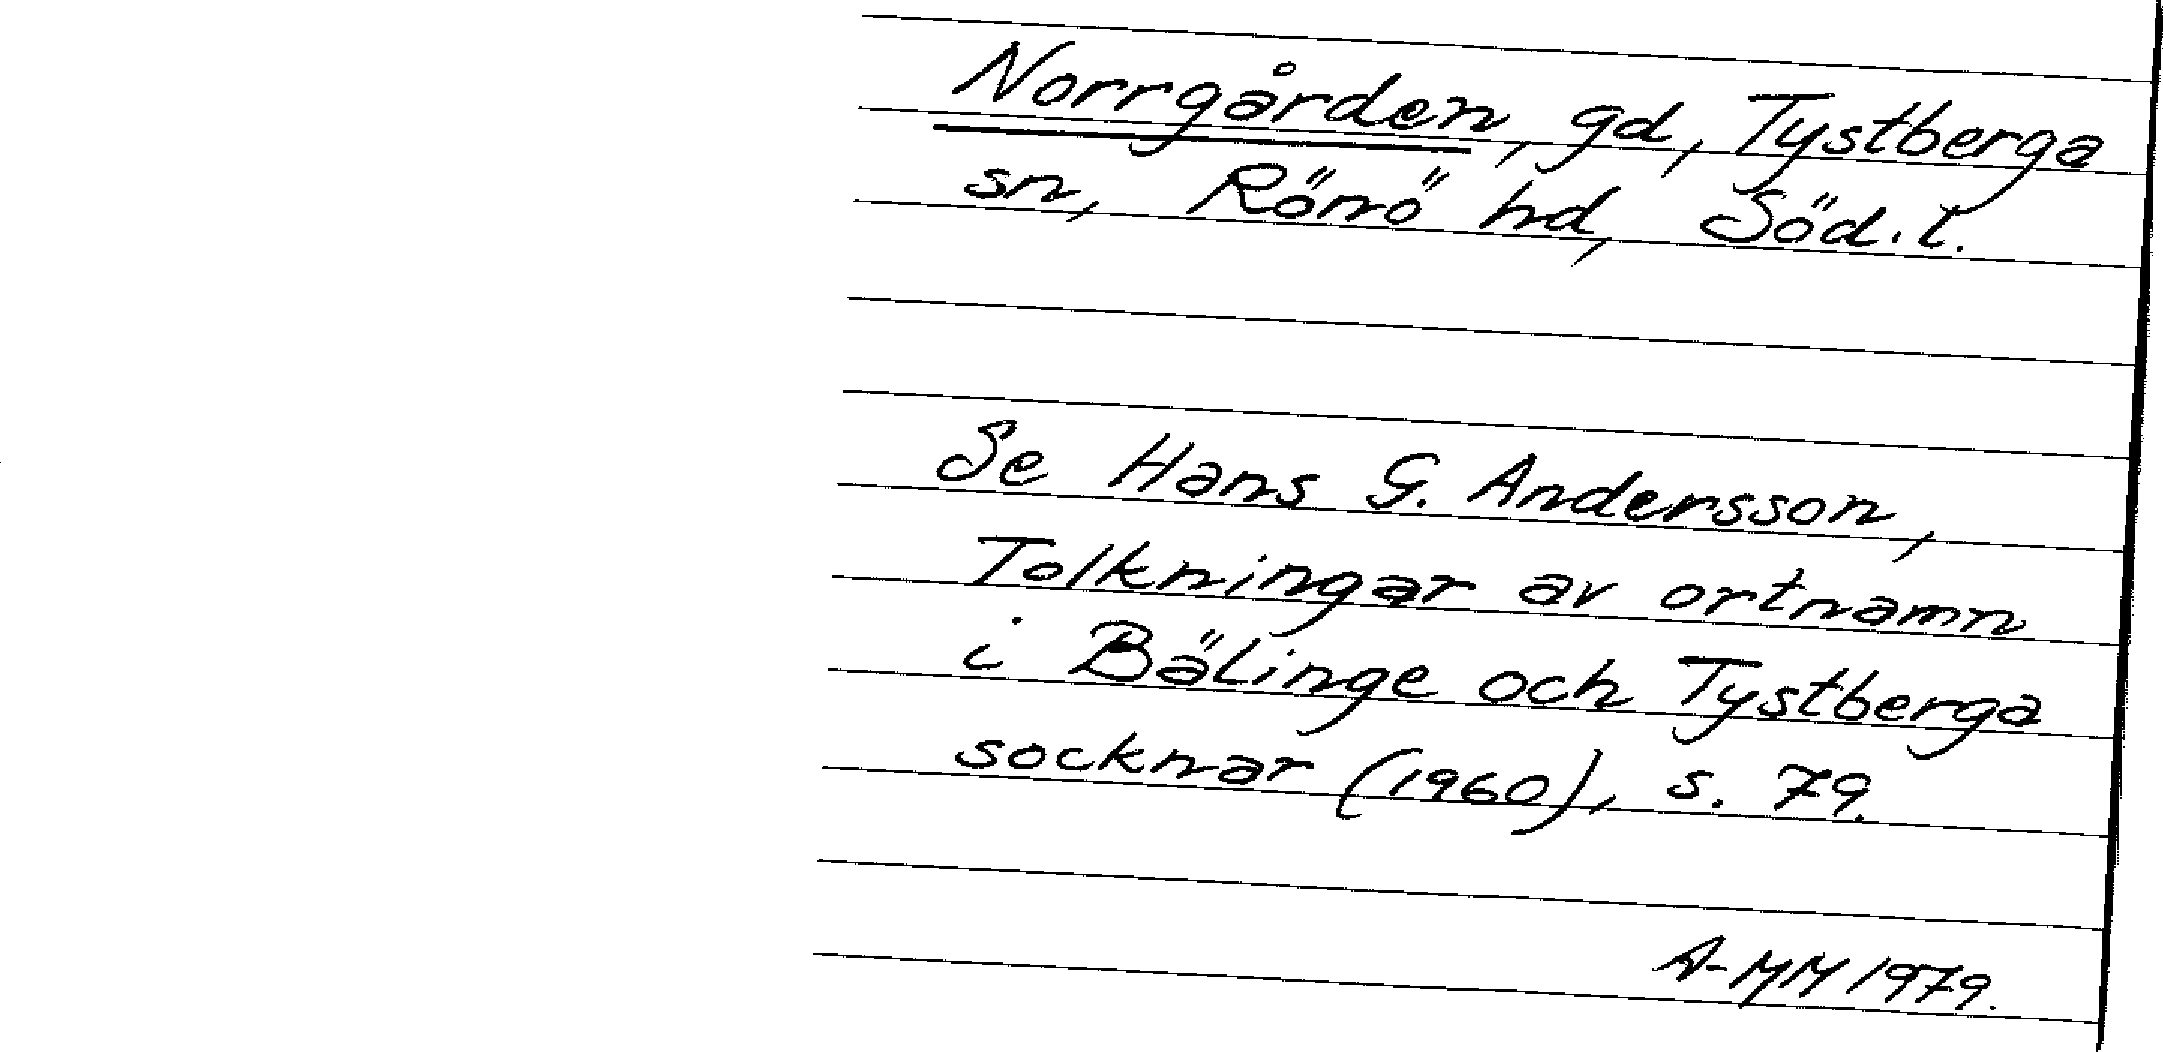 Norrgården, gd, Tystberga
sn, Rönö hd, Söd. l.
Se Hans G. Andersson,
Tolkningar av ortnamn
i Bälinge och Tystberga
socknar (1960), s. 79.
A-MM 1979.